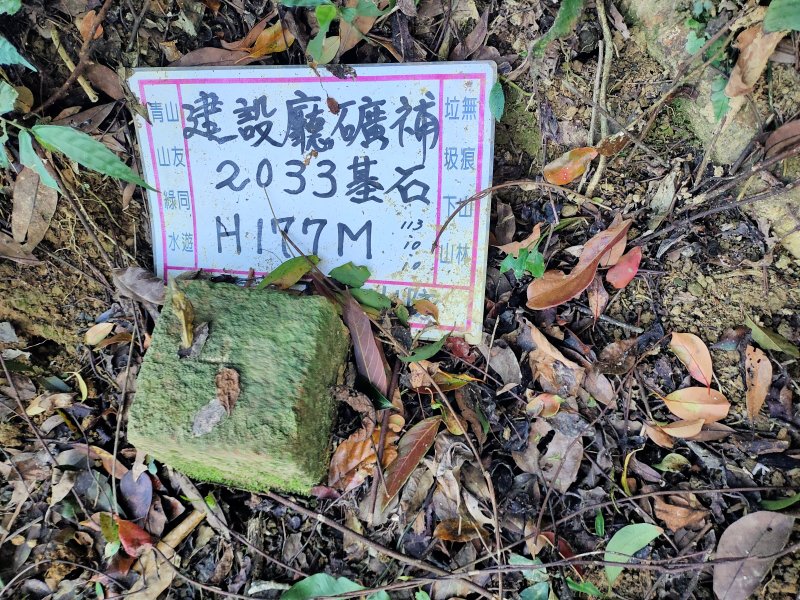 建設廳礦補
2033基石
H177M
113
10
山友同遊
青山綠水
無痕山林
垃圾下山